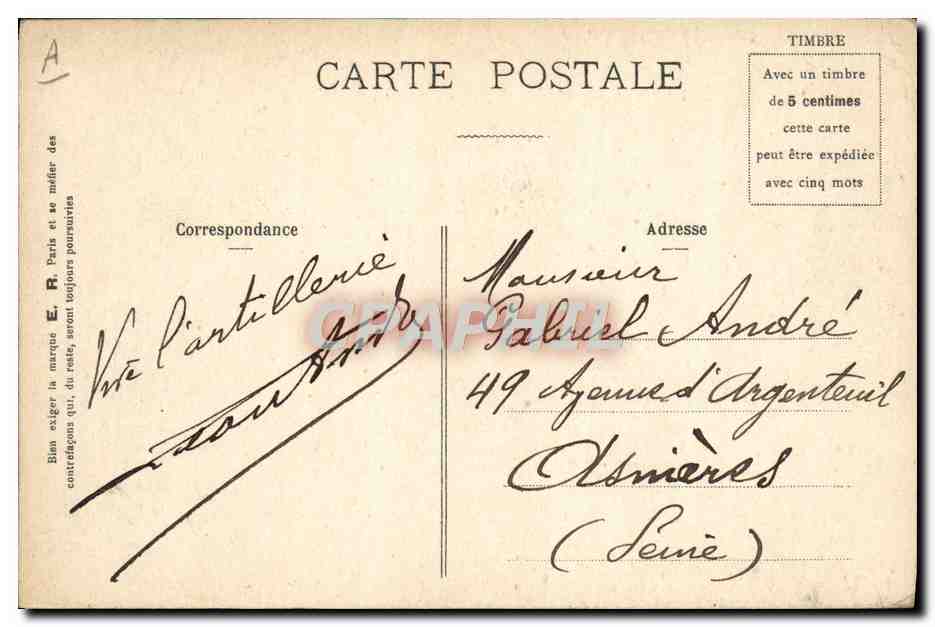 A
TIMBRE
CARTE POSTALE
Avec un timbre
de 5 centimes
cette carte
peut être expédiée
avec cinq mots
Bien exiger la marque E. R. Paris et se méfier des
contrefaçons qui, du reste, seront toujours poursuivies
Correspondance
Vive l'artillerie
André
Adresse
Monsieur
Gabriel André
49 Avenue d'Argenteuil
Asnières
(Seine)
CARTE POSTALE
CPAPHIL